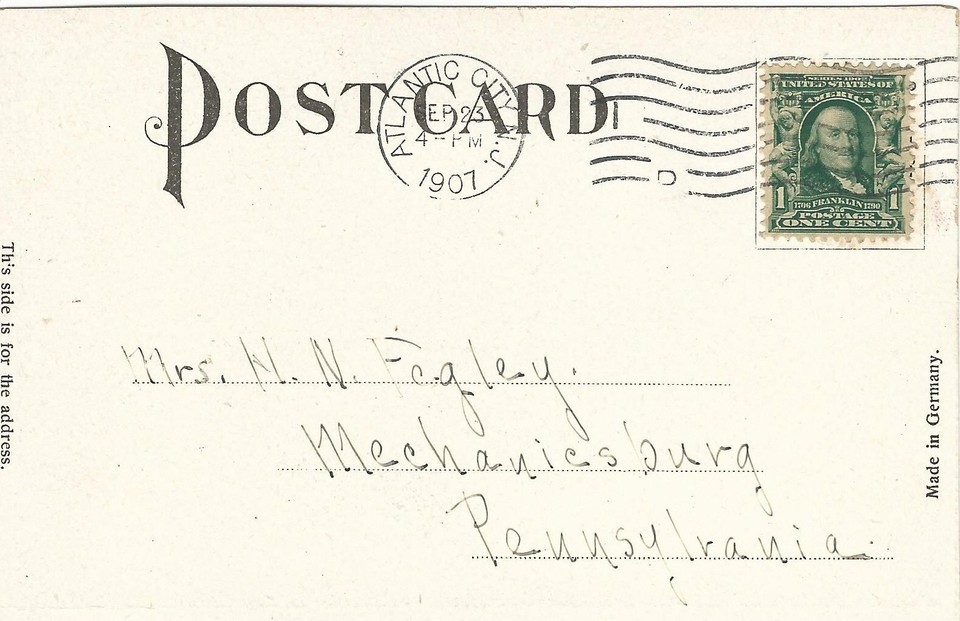 POST CARD
ATLANTIC CITY, N.J.
SEP 23
4 - PM
1907
D
SERIES 1902
UNITED STATES OF
AMERICA
1 1
1706 FRANKLIN 1790
POSTAGE
ONE CENT
This side is for the address.
Mrs. H. N. Fogley.
Mechanicsburg
Pennsylvania.
Made in Germany.